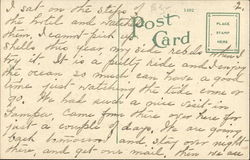 I sat on the steps of
the hotel and watched
them, I cannot pick up
Shells this year, my side
try it. It is a pretty ride and I enjoy
the ocean so much can have a good
time just watching the tide come or
go. We had such a nice visit in
Tampa, Came from there over here for
just a couple of days. We are going
back tomorrow and stay over night
there, and get our mail, then we are
Post
Card
PLACE
STAMP
HERE